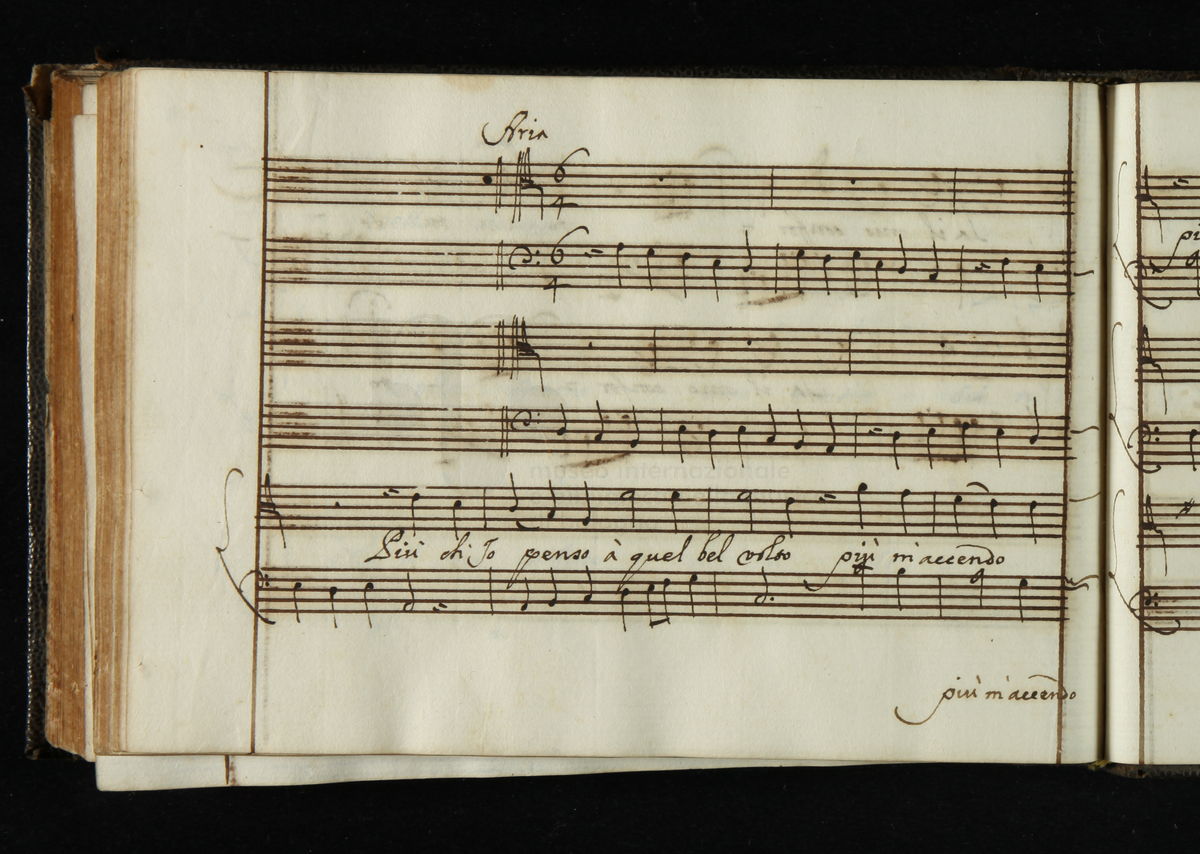 Aria
6
4
6
4
museo internazionale
Più ch'Io penso à quel bel volto più m'accendo
più m'accendo